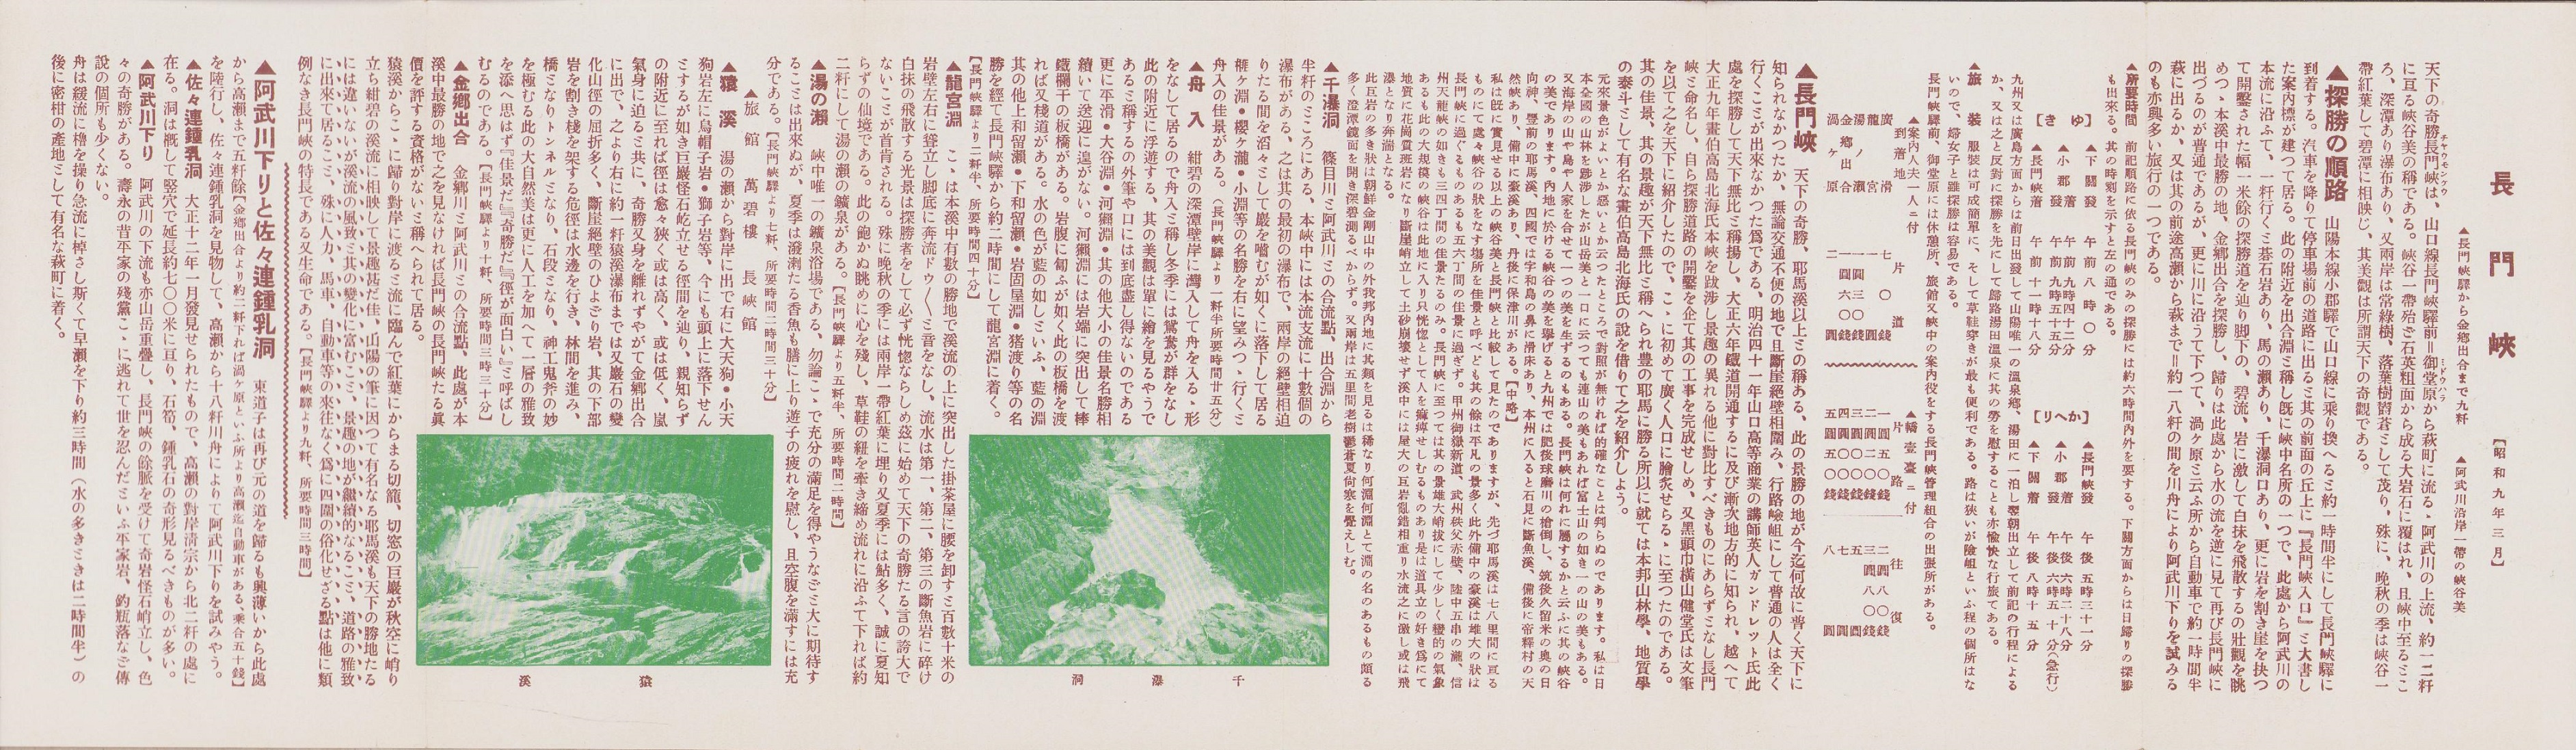 長門峽
【昭和九年三月】
▲長門峽驛から金鄕出合まで九粁　▲阿武川沿岸一帶の峽谷美
天下の奇勝長門峽は、山口線長門峽驛前＝御堂原から萩町に流る・阿武川の上流、約一二粁
に亙る峽谷美の稱である。峽谷一帶殆ど石英粗面から成る大岩石に覆はれ、且峽中至るミこ
ろ、深潭あり瀑布あり、又兩岸は常綠樹、落葉樹蒼として茂り、殊に、晚秋の季は峽谷一
帶紅葉して碧潭に相映じ、其美觀は所謂天下の奇觀である。
▲探勝の順路　山陽本線小郡驛で山口線に乘り換へるミ約一時間半にして長門峽驛に
到着する。汽車を降りて停車場前の道路に出るミ其の前面の丘上に『長門峽入口』ミ大書し
た案內標が建つて居る。此の附近を出合淵ミ稱し旣に峽中名所の一つで、此處から阿武川の
本流に沿ふて、一粁行くミ碁石岩あり、馬の瀨あり、千瀑洞口あり、更に岩を割き崖を抉つ
て開鑿された幅一米餘の探勝道を辿り脚下の、碧流、岩に激して白抹を飛散するの壯觀を眺
めつ・本溪中最勝の地、金鄕出合を探勝し、歸りは此處から水の流を逆に見て再び長門峽に
出づるのが普通であるが、更に川に沿うて下つて、渦ヶ原ミ云ふ所から自動車で約一時間半
萩に出るか、又は其の前途高瀨から萩まで＝約一八粁の間を川舟により阿武川下りを試みる
のも亦興多い旅行の一つである。
▲所要時間　前記順路に依る長門峽のみの探勝には約六時間內外を要する。下關方面からは日歸りの探勝
も出來る。其の時刻を示すと左の通である。
【きゆ】
▲下關發　午前八時〇分
▲小郡着　午前九時四十二分
發　午前九時五十五分
▲長門峽着　午前十一時十八分
【りへか】
▲長門峽發　午後五時三十一分
▲小郡着　午後六時二十八分
發　午後六時五十分(急行)
▲下關着　午後八時十五分
九州又は廣島方面からは前日出發して山陽唯一の溫泉鄕、湯田に一泊し翌朝出立して前記の行程による
か、又は之と反對に探勝を先にして歸路湯田溫泉に其の勞を慰することも亦愉快な行旅である。
▲旅裝　服裝は可成簡單に、そして草鞋穿きが最も便利である。路は狹いが險岨といふ程の個所はな
いので、婦女子と雖探勝は容易である。
長門峽驛前、御堂原には休憩所、旅館又峽中の案內役をする長門峽管理組合の出張所がある。
▲案內人夫一人ニ付
到着地　片道
▲轎壹臺ニ付
片路　往復
▲長門峽　天下の奇勝、耶馬溪以上ミの稱ある、此の景勝の地が今迄何故に普く天下に
知られなかつたか、無論交通不便の地で且斷崖絕壁相圍み、行路嶮岨にして普通の人は全く
行くこミが出來なかつた爲である、明治四十一年山口高等商業の講師英人ガンドレット氏此
處を探勝して天下無比ミ稱揚し、大正六年鐵道開通するに及び漸次地方的に知られ、越へて
大正九年畫伯高島北海氏本峽を跋涉し景趣の異れる他に對比すべきものにあらずミなし長門
峽ミ命名し、自ら探勝道路の開鑿を企て其の工事を完成せしめ、又黑頭巾橫山健堂氏は文筆
を以て之を天下に紹介したので、こ・に初めて廣く人口に膾炙せらる・に至つたのである。
其の佳景、其の景趣が天下無比ミ稱へられ豊の耶馬に勝る所以に就ては本邦山林學、地質學
の泰斗ミして有名な畫伯高島北海氏の說を借りて之を紹介しよう。
元來景色がよいとか惡いとか云つたところで對照が無ければ的確なことは判らぬのであります。私は日
本全國の山林を跋涉したが山岳美と一口に云つても連山の美もあれば富士山の如き一の山の美もある。
又海岸の山や島や人家を合せて一つの美を生ずるのもある。長門峽は何れに屬するかと云ふに其の峽谷
の美であります。內地に於ける峽谷の美を擧げると九州では肥後球磨川の槍倒し、筑後久留米の奧の日
向神、豊前の耶馬溪、四國では宇和島の鼻に滑床あり、本州に入ると石見に斷魚溪、備後に帝釋村の天
然峽あり、備中に豪溪あり、丹後に保津川がある。【中略】
私は旣に實見せる以上の峽谷美と長門峽と比較して見たのでありますが、先づ耶馬溪は七八里間に亙る
ものにて處々峽谷の狀をなす場所を佳景と呼べども其の餘は平凡の景多く此外備中の豪溪は雄大の狀は
長門峽に過ぐるものあるも五六丁間の佳景に過ぎず。甲州御嶽新道、武州秩父赤壁、陸中五串の瀧、信
州天龍峽の如きも三四丁間の佳景たるのみ。長門峽に至つては其の景雄大峭拔にして少しく變的の氣象
あるも此の大規模の峽谷は此地に入り只恍惚として人を痲痺せしむるものあり是は道具立の好き爲にて
地質に花崗質斑岩になり斷崖峭立して土砂崩壞せず溪中には屋大の巨岩亂錯相重り水流之に激し或は飛
瀑となり奔湍となる。
此巨岩の多き狀は朝鮮金剛山中の外我邦內地に其類を見るは稀なり何淵何淵とて淵の名のあるもの頗る
多く澄潭鏡面を開き深碧測るべからず。又兩岸は五里間老樹鬱蒼夏尙寒を覺えしむ。
▲千瀑洞　篠目川ミ阿武川ミの合流點、出合淵から
半粁のミころにある、本峽中には本流支流に十數個の
瀑布がある、之は其の最初の瀑布で、兩岸の絕壁相迫
りたる間を滔々ミして巖を嚙むが如くに落下して居る
榧ヶ淵・櫻ヶ瀧・小淵等の名勝を右に望みつ・行くミ
舟入の佳景がある。〔長門峽驛より一粁半所要時間廿五分〕
▲舟入　紺碧の深潭壁岸に灣入して舟を入る・形
をなして居るので舟入ミ稱し冬季には鴛鴦が群をなし
此の附近に浮遊する、其の美觀は單に繪を見るやうで
あるミ稱するの外筆や口には到底盡し得ないのである
更に平滑・大谷淵・河獺淵・其の他大小の佳景名勝相
續いて送迎に遑がない。河獺淵には岩端に突出して棒
鐵欄干の板橋がある。岩腹に匐ふが如く此の板橋を渡
れば又棧道がある。水の色が藍の如しミいふ、藍の淵
其の他上和留瀨・下和留瀨・岩固屋淵・猪渡り等の名
勝を經て長門峽驛から約二時間にして龍宮淵に着く。
【長門峽驛より二粁半、所要時間四十分】
千瀑洞
▲龍宮淵　こ・は本溪中有數の勝地で溪流の上に突出した掛茶屋に腰を卸すミ百數十米の
岩壁左右に聳立し脚底に奔流ドゥ〱ミ音をなし、流水は第一、第二、第三の斷魚岩に碎け
白抹の飛散する光景は探勝者をして必ず恍惚ならしめ玆に始めて天下の奇勝たる言の誇大で
ないこミが首肯される。殊に晚秋の季には兩岸一帶紅葉に埋り又夏季には鮎多く、誠に夏知
らずの仙境である。此の飽かぬ眺めに心を殘し、草鞋の紐を牽き締め流れに沿ふて下れば約
二粁にして湯の瀨の鑛泉がある。【長門峽驛より五粁半、所要時間二時間】
▲湯の瀨　峽中唯一の鑛泉浴場である、勿論こ・で充分の滿足を得やうなミミ大に期待す
るこミは出來ぬが、夏季は潑溂たる香魚も膳に上り遊子の疲れを慰し、且空腹を滿すには充
分である。【長門峽驛より七粁、所要時間二時間三十分】
▲旅館　萬碧樓　長峽館
▲猿溪　湯の瀨から對岸に出で右に大天狗・小天
狗岩左に烏帽子岩・獅子岩等、今にも頭上に落下せん
ミするが如き巨巖怪石屹立せる徑間を辿り、親知らず
の附近に至れば徑は愈々狹く或は高く、或は低く、嵐
氣身に迫るミ共に、奇勝又身を離れずやがて金鄕出合
に出で、之より右に約一粁猿溪瀑布までは又巖石の變
化山徑の屈折多く、斷崖絕壁のひよどり岩、其の下部
岩を割き棧を架する危徑は水邊を行き、林間を進み、
橋ミなりトンネルミなり、石段ミなり、神工鬼斧の妙
を極むる此の大自然美は更に人工を加へて一層の雅致
を添へ思はず『佳景だ』『奇勝だ』『徑が面白い』ミ呼ばし
むるのである。【長門峽驛より十粁、所要時間三時三十分】
▲金鄕出合　金鄕川ミ阿武川ミの合流點、此處が本
溪中最勝の地で之を見なければ長門峽の長門峽たる眞
價を評する資格がないミ稱へられて居る。
猿溪からこ・に歸り對岸に渡るミ流に臨んで紅葉にからまる切籠、切窓の巨巖が秋空に峭り
立ち紺碧の溪流に相映して景趣甚だ佳、山陽の筆に因つて有名なる耶馬溪も天下の勝地たる
には違いないが溪流の風致ミ其の變化に富むこミ、景趣の地が繼續的なるこミ、道路の雅致
に出來て居るこミ、殊に人力、馬車、自動車等の來往なく爲に四圍の俗化せざる點は他に類
例なき長門峽の特長である又生命である。【長門峽驛より九粁、所要時間三時間】
猿溪
▲阿武川下りと佐々連鍾乳洞　東道子は再び元の道を歸るも興薄いから此處
から高瀨まで五粁餘【金鄕出合より約二粁下れば渦ヶ原といふ所より高瀨迄自動車がある、乘合五十錢】
を陸行し、佐々連鍾乳洞を見物して、高瀨から十八粁川舟によりて阿武川下りを試みやう。
▲佐々連鍾乳洞　大正十二年一月發見せられたもので、高瀨の對岸淸宗から北二粁の處に
在る。洞は槪して竪穴で延長約七〇〇米に亙り、石筍、鍾乳石の奇形見るべきものが多い。
▲阿武川下り　阿武川の下流も亦山岳重疊し、長門峽の餘脈を受けて奇岩怪石峭立し、色
々の奇勝がある。壽永の昔平家の殘黨こ・に逃れて世を忍んだミいふ平家岩、釣瓶落なミ傳
說の個所も少くない。
舟は緩流に櫓を操り急流に棹さし斯くて早瀨を下り約三時間（水の多きときは二時間半）の
後に密柑の產地ミして有名な萩町に着く。